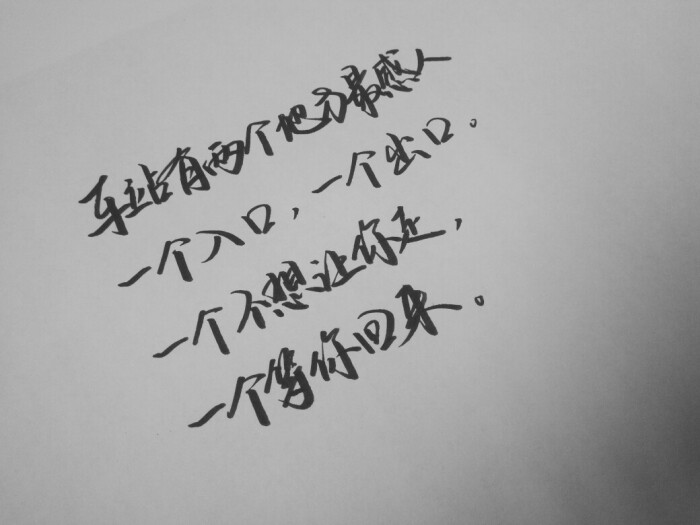 车站有两个地方最感人
一个入口，一个出口。
一个不想让你走，
一个等你回来。